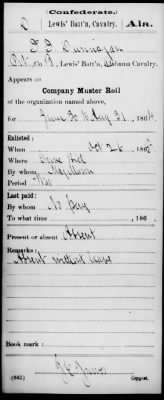 Confederate.
D Lewis' Batt'n, Cavalry. Ala.
Appears on
Company Muster Roll
of the organization named above,
for June 30 to Aug 31, 1864.
Enlisted:
When Oct 26, 186
Where
By whom
Period War
Last paid:
By whom No Pay
To what time , 186 .
Present or absent Absent
Remarks:
Absent without leave
Book mark:
(642) Copyist.